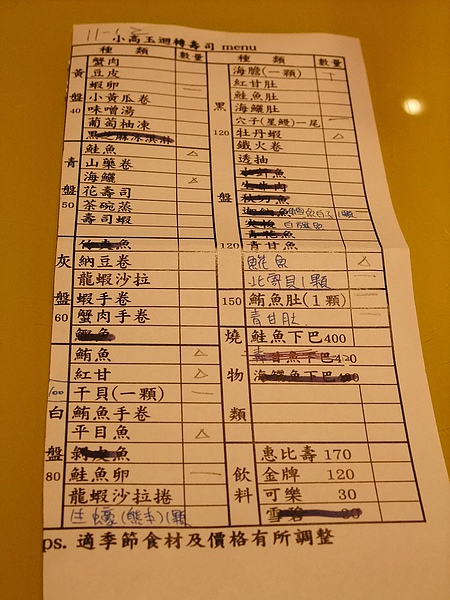 小高玉迴轉壽司 menu
種類 數量
黃盤40
蟹肉
豆皮
蝦卵 一
小黃瓜卷
味噌湯
葡萄柚凍
黑芝麻冰淇淋
青盤50
鮭魚 △
山藥卷
海鱺
花壽司
茶碗蒸
壽司蝦
灰盤60
納豆卷
龍蝦沙拉
蝦手卷
蟹肉手卷
白盤80
鮪魚 △
紅甘 △
干貝(一顆) 一
鮪魚手卷
平目魚 △
鮭魚卵 一
龍蝦沙拉捲
生蠔(熊本)1顆
種類 數量
黑盤120
海膽(一顆)
紅甘肚
鮭魚肚
海鱺肚
穴子(星鰻)一尾 一
牡丹蝦 △
鐵火卷
透抽
白旗魚
120
青甘魚
北寄貝1顆 一
150
鮪魚肚(1顆) 一
青甘肚
燒物類
鮭魚下巴400
青甘魚下巴400
海鱺魚下巴400
飲料
惠比壽 170
金牌 120
可樂 30
雪碧 30
ps. 適季節食材及價格有所調整